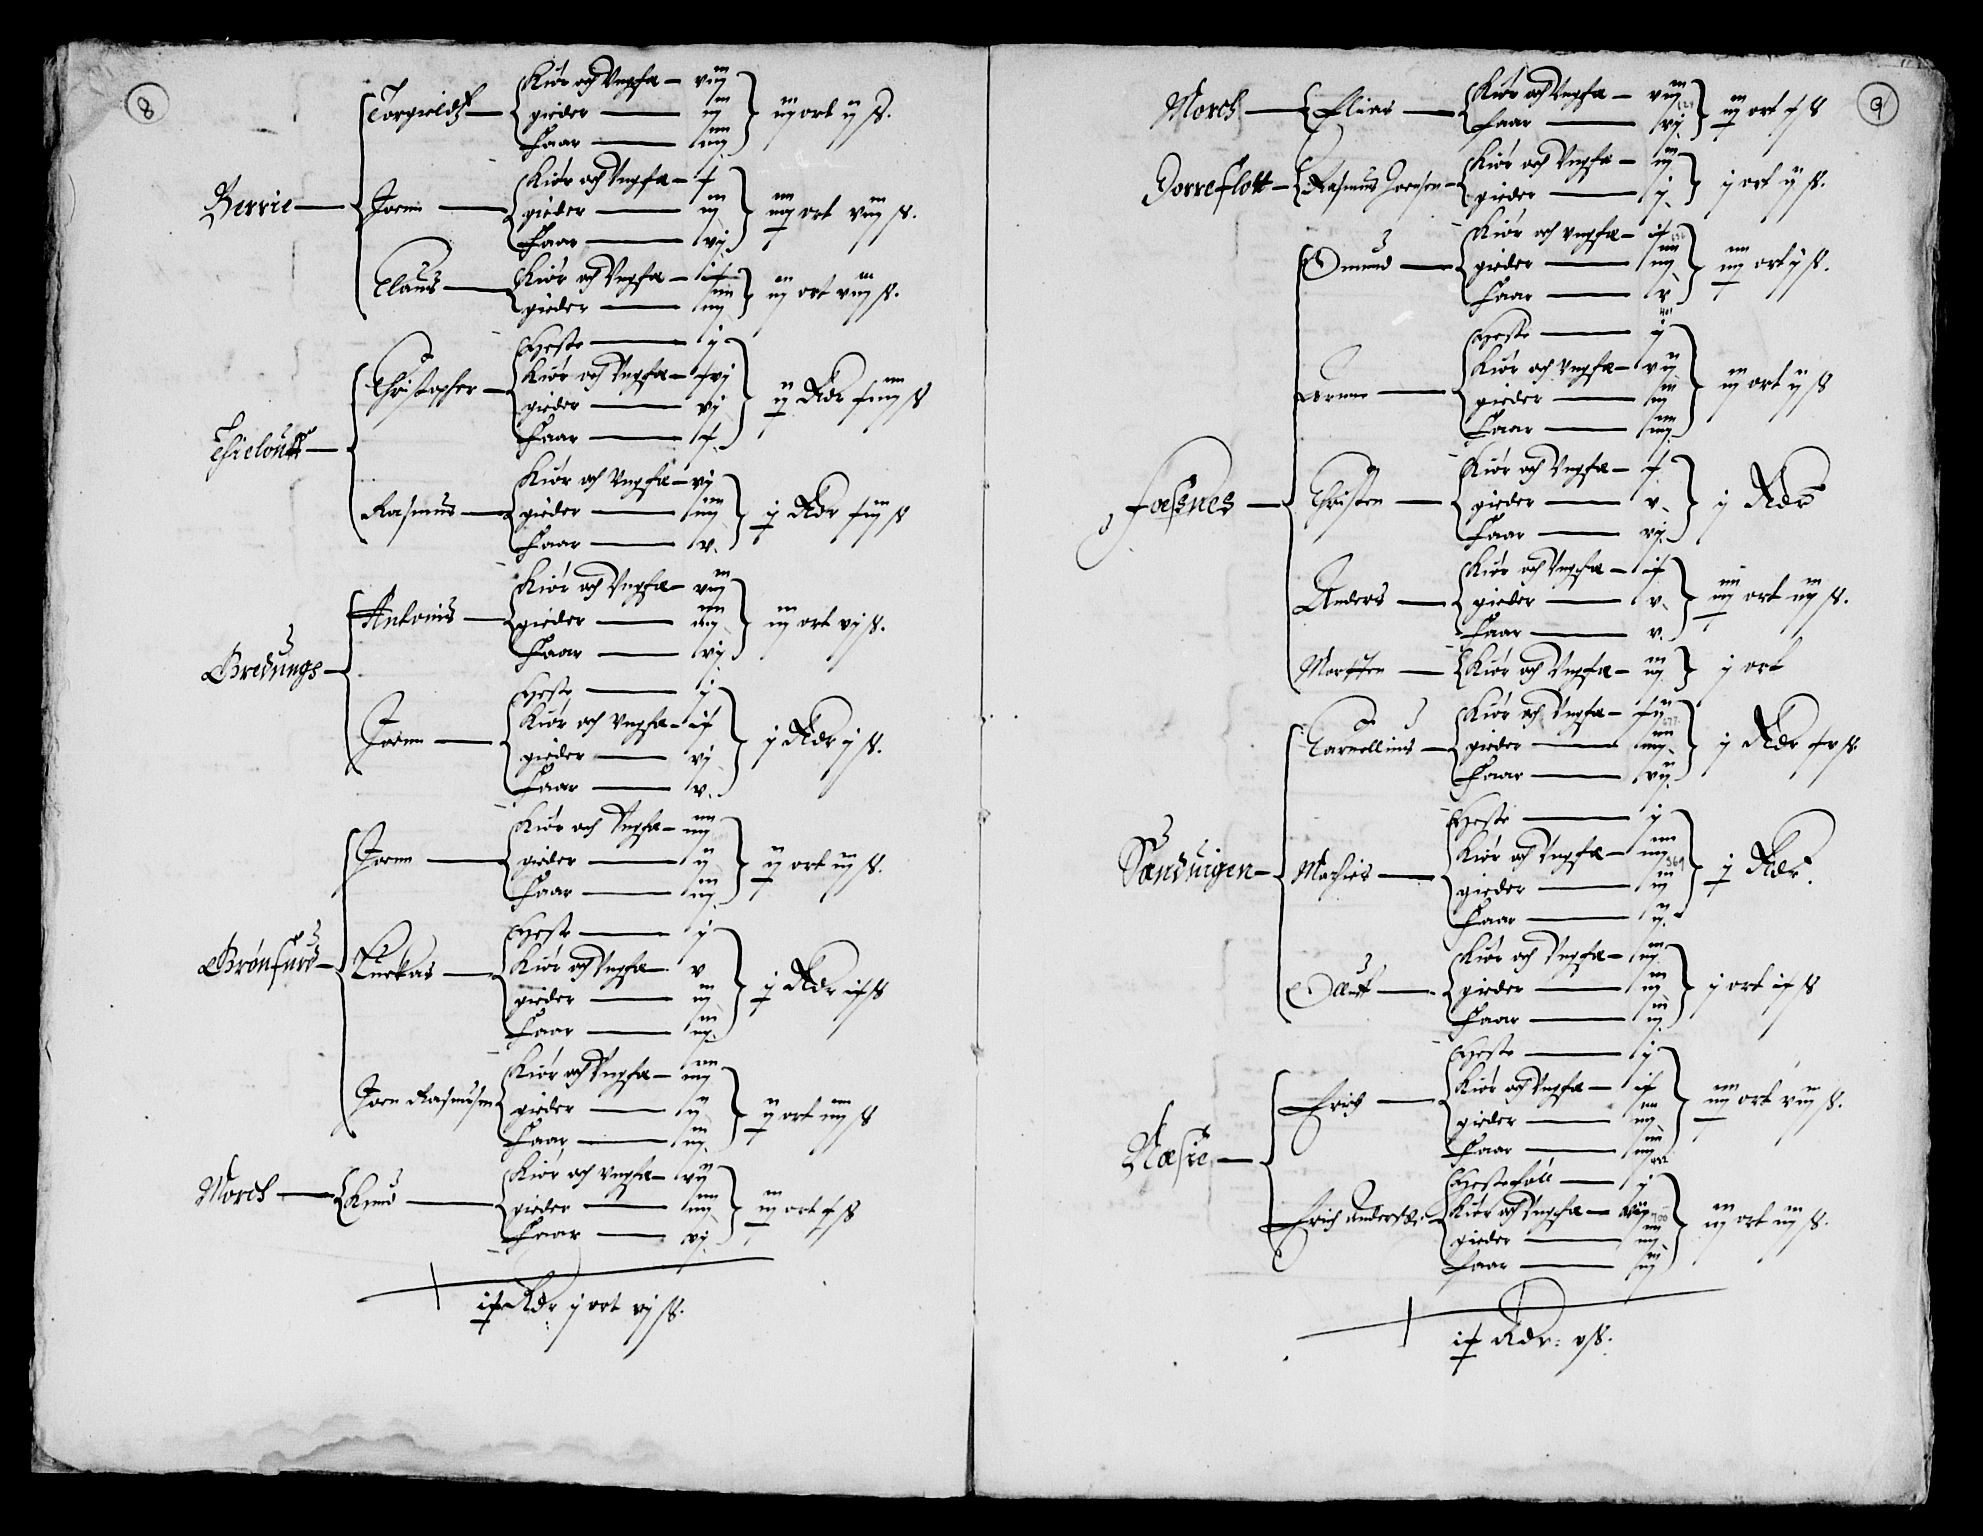 8
Berrie — Torgield — Kiør och Vngfæ — viij
gieder — iij
Faar — iiij
iij ort ij ß.
Joenn — Kiør och Vngfæ — x
gieder — iij
Faar — vj
iiij ort viij ß.
Claus — Kiør och Vngfæ — ix
gieder — iiij
iij ort viij ß.
Christopher — Heste — j
Kiør och Vngfæ — xvj
gieder — vj
Faar — x
ij Rdr xiiij ß
Rasmus — Kiør och Vngfæ — vj
gieder — iiij
Faar — v.
j Rdr xiij ß
Bredungs — Antonius — Kiør och Vngfæ — viij
gieder — iiij
Faar — vj
iij ort vj ß.
Joenn — Heste — j
Kiør och Vngfæ — ix
gieder — vj
Faar — v.
j Rdr j ß.
Joenn — Kiør och Vngfæ — iiij
gieder — ij
Faar — iij
ij ort iij ß.
Luckas — Heste — j
Kiør och Vngfæ — v
gieder — iij
Faar — iij.
j Rdr ix ß
Joen Rasmusen — Kiør och Vngfæ — iiij
gieder — ij
Faar — iij
ij ort iiij ß
Morch — Knud — Kiør och Vngfæ — vij
gieder — iiij
Faar — vj
iij ort x ß
ix Rdr j ort vj ß.
9
Morch — Elias — Kiør och Vngfæ — viij
Faar — vj.
iij ort x ß
Dorreflott — Rasmus Joensen — Kiør och Vngfæ — iij
gieder — j
j ort ij ß.
Fosnes — Omund — Kiør och Vngfæ — ix
gieder — iiij
Faar — v
iiij ort ij ß.
Heste — j
Kiør och Vngfæ — vij
gieder — iij
Faar — iiij
iij ort ij ß
Christen — Kiør och Vngfæ — x
gieder — v.
Faar — vj.
j Rdr
Anders — Kiør och Vngfæ — ix
gieder — v.
Faar — v.
iiij ort iij ß.
Mortten — Kiør och Vngfæ — iij
j ort
Sanduigen — Carnellius — Kiør och Vngfæ — xij
gieder — iiij
Faar — vij.
j Rdr xv ß.
Maties — Heste — j
Kiør och Vngfæ — iiij
gieder — iij
Faar — ij.
j Rdr.
Olluff — Kiør och Vngfæ — iij
gieder — iij
Faar — iij
j ort ix ß
Næsie — Erich — Heste — j
Kiør och Vngfæ — ix
gieder — iiij
Faar — iiij
iiij ort viij ß.
Erich Andersen — Hestefoll — j
Kiør och Vngfæ
gieder — iiij
Faar — iij
iij ort iij ß.
ix Rdr: v ß.